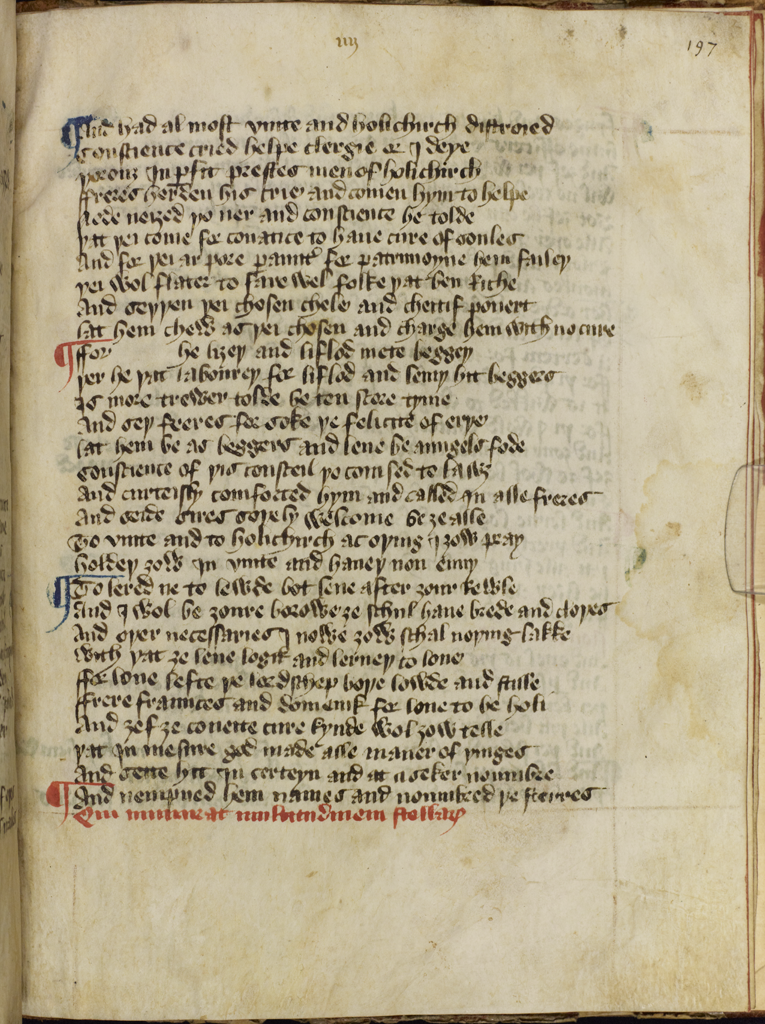 iiij
197
And had al most vnite and holichirch distroied
Conscience cried helpe clergie or I deye
þorouȝ inpfit prestes men of holichirch
ffreres herden his crie and comen hym to helpe
Nede neiȝed þo ner and conscience he tolde
þat þei come for couatice to haue cure of soules
And for þei ar pore for patrimoyne hem faileþ
þei wol flater to fare wel folke þat ben riche
And seþþen þei chosen chele and cheitif pouert
lat hem chew as þei chosen and charge hem with no cure
ffor he liȝeþ and liflod mote beggeþ
þer he þat laboureþ for liflod and hit beggers
And seþ freres for soke þe felicite of erþe
lat hem be as beggers and leue be aungels fode
Conscience of þis conseil þo comsed to lawȝ
And curteisly comforted hym and called in alle freres
And seide sires soþely welcome be ȝe alle
To vnite and to holichirch ac oþing I ȝow pray
holdeþ ȝow in vnite and haueþ non enuy
To lered ne to lewde bot leue after ȝour rewle
And I wol be ȝoure borowe ȝe schul haue brede and cloþes
And oþer necessaries I nowe ȝow schal noþing lakke
with þat ȝe leue logik and lerneþ to loue
ffor loue lefte þe lordschep boþe lowde and stille
ffrere fraunces and domenik for loue to be holi
And ȝef ȝe coueite cure kynde wol ȝow telle
þat in mesure god made alle maner of þinges
And sette hit in certeyn and at a seker noumbre
And nempned hem names and noumbred þe sterres
Qui numerat multitudinem stellarum